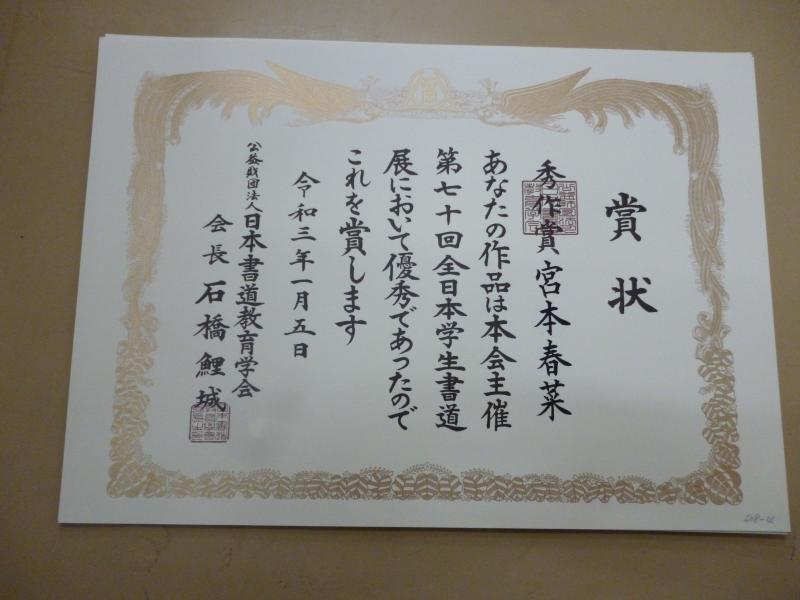 賞状
秀作賞 宮本春菜
あなたの作品は本会主催
第七十回全日本学生書道
展において優秀であったので
これを賞します
令和三年一月五日
公益財団法人日本書道教育学会
会長 石橋鯉城